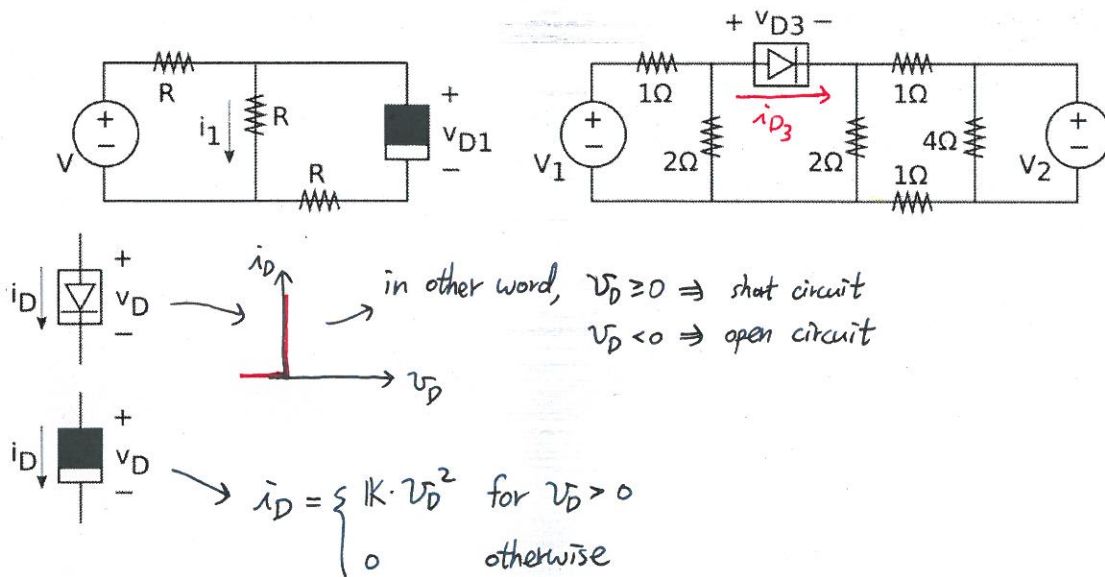 R
i1
R
V
+
−
+
vD1
−
R
+ vD3 −
1Ω
iD3
1Ω
V1
+
−
2Ω
2Ω
4Ω
1Ω
+
−
V2
iD
+
vD
−
iD
vD
in other word, vD ≥ 0 ⇒ short circuit
vD < 0 ⇒ open circuit
iD
+
vD
−
iD = { K · vD² for vD > 0
0 otherwise